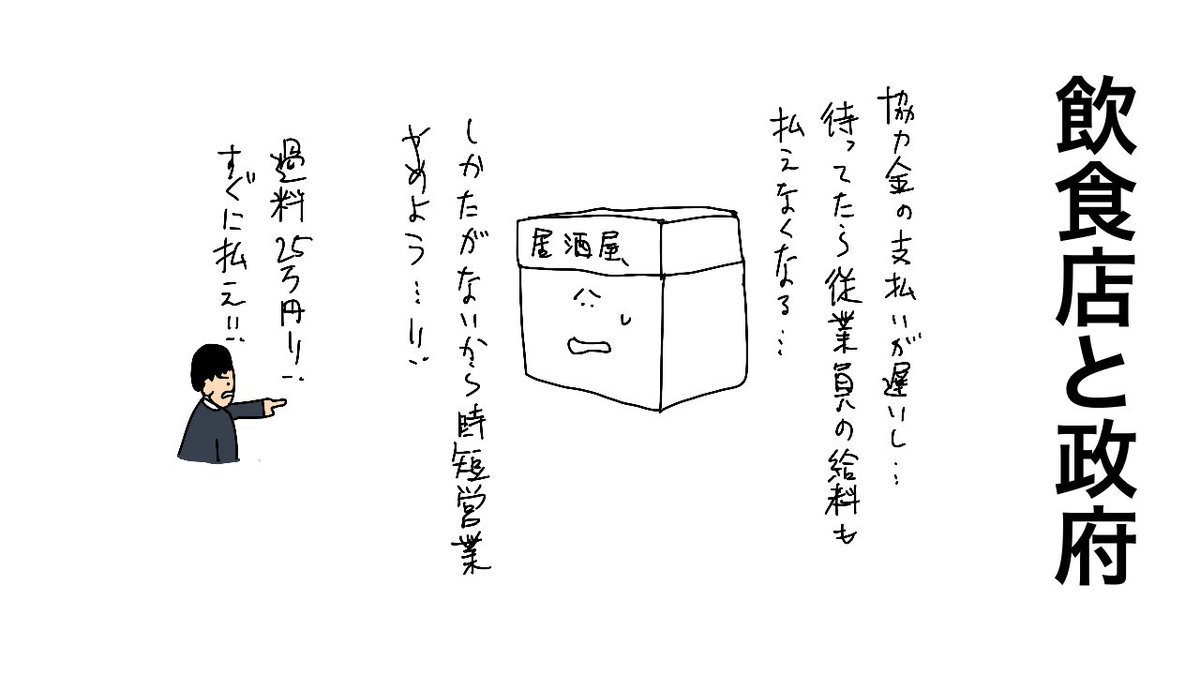 飲食店と政府
協力金の支払いが遅いし…
待ってたら従業員の給料も
払えなくなる…
居酒屋
しかたがないから時短営業
やめよう…!!
過料25万円!!
すぐに払え!!